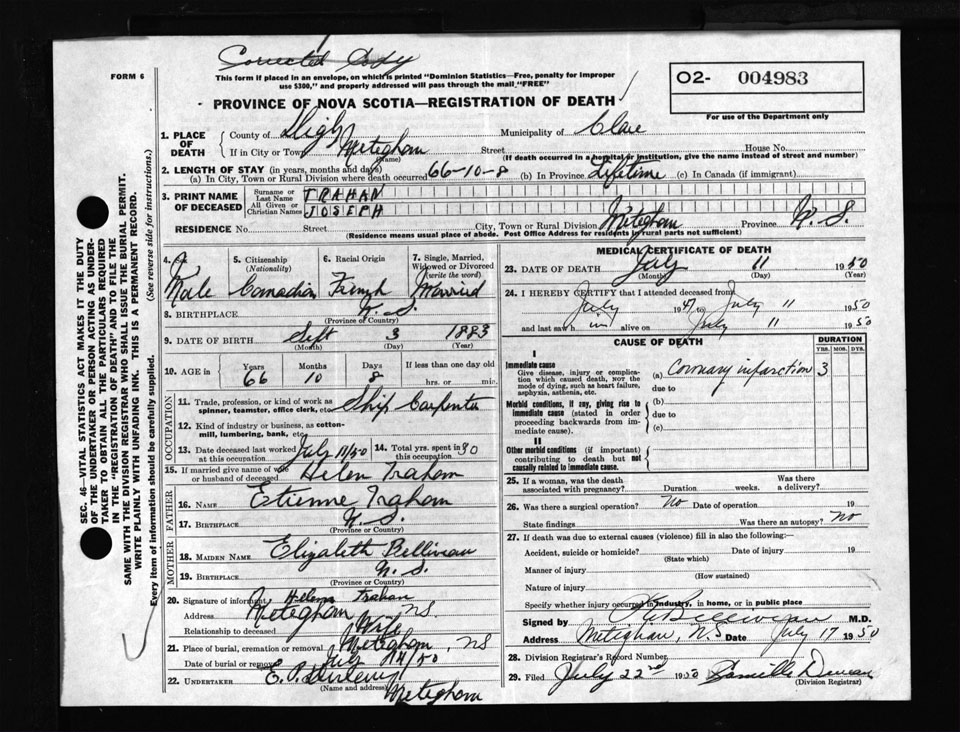 Corrected Copy
FORM 6
This form if placed in an envelope, on which is printed "Dominion Statistics—Free, penalty for improper
use $300," and properly addressed will pass through the mail "FREE"
O2- 004983
For use of the Department only
PROVINCE OF NOVA SCOTIA—REGISTRATION OF DEATH
1. PLACE OF DEATH County of Digby Municipality of Clare
If in City or Town Meteghan (Name) Street House No.
(If death occurred in a hospital or institution, give the name instead of street and number)
2. LENGTH OF STAY (in years, months and days)
(a) In City, Town or Rural Division where death occurred 66-10-8 (b) In Province Lifetime (c) In Canada (if immigrant)
3. PRINT NAME OF DECEASED Surname or Last Name TRAHAN
All Given or Christian Names JOSEPH
RESIDENCE No. Street City, Town or Rural Division Meteghan Province N.S.
(Residence means usual place of abode. Post Office Address for residents in rural parts not sufficient)
4. Male
5. Citizenship (Nationality) Canadian
6. Racial Origin French
7. Single, Married, Widowed or Divorced (write the word) Married
8. BIRTHPLACE N.S. (Province or Country)
9. DATE OF BIRTH Sept (Month) 3 (Day) 1883 (Year)
10. AGE in Years 66 Months 10 Days 8 If less than one day old hrs. or min.
OCCUPATION
11. Trade, profession, or kind of work as spinner, teamster, office clerk, etc. Ship Carpenter
12. Kind of industry or business, as cotton-mill, lumbering, bank, etc.
13. Date deceased last worked at this occupation July 11/50
14. Total yrs. spent in this occupation 30
15. If married give name of wife or husband of deceased Helen Traham
FATHER
16. NAME Etienne Traham
17. BIRTHPLACE N.S. (Province or Country)
MOTHER
18. MAIDEN NAME Elizabeth Belliveau
19. BIRTHPLACE N.S. (Province or Country)
20. Signature of informant Helen Trahan
Address Meteghan NS
Relationship to deceased Wife
21. Place of burial, cremation or removal Meteghan, NS
Date of burial or removal July 14/50
22. UNDERTAKER E.P. (Name and address) Meteghan
MEDICAL CERTIFICATE OF DEATH
23. DATE OF DEATH July (Month) 11 (Day) 1950 (Year)
24. I HEREBY CERTIFY that I attended deceased from
July 1947 to July 11 1950
and last saw him alive on July 11 1950
CAUSE OF DEATH
DURATION
YRS. MOS. DYS.
I
Immediate cause
Give disease, injury or complication which caused death, NOT the mode of dying, such as heart failure, asphyxia, asthenia, etc.
(a) Coronary infarction 3
due to
Morbid conditions, if any, giving rise to immediate cause (stated in order proceeding backwards from immediate cause).
(b)
due to
(c)
II
Other morbid conditions (if important) contributing to death but not causally related to immediate cause.
25. If a woman, was the death associated with pregnancy? Duration weeks. Was there a delivery?
26. Was there a surgical operation? No Date of operation 19
State findings Was there an autopsy? No
27. If death was due to external causes (violence) fill in also the following:
Accident, suicide or homicide? (State which) Date of injury 19
Manner of injury (How sustained)
Nature of injury
Specify whether injury occurred in industry, in home, or in public place
Signed by Belliveau M.D.
Address Meteghan, N.S Date July 17 1950
28. Division Registrar's Record Number
29. Filed July 22nd 1950 (Division Registrar)
SEC. 46—VITAL STATISTICS ACT MAKES IT THE DUTY
OF THE UNDERTAKER OR PERSON ACTING AS UNDER-
TAKER TO OBTAIN ALL THE PARTICULARS REQUIRED
IN THE "REGISTRATION OF DEATH" AND TO FILE THE
SAME WITH THE DIVISION REGISTRAR WHO SHALL ISSUE THE BURIAL PERMIT.
WRITE PLAINLY WITH UNFADING INK. THIS IS A PERMANENT RECORD.
Every item of information should be carefully supplied. (See reverse side for instructions.)